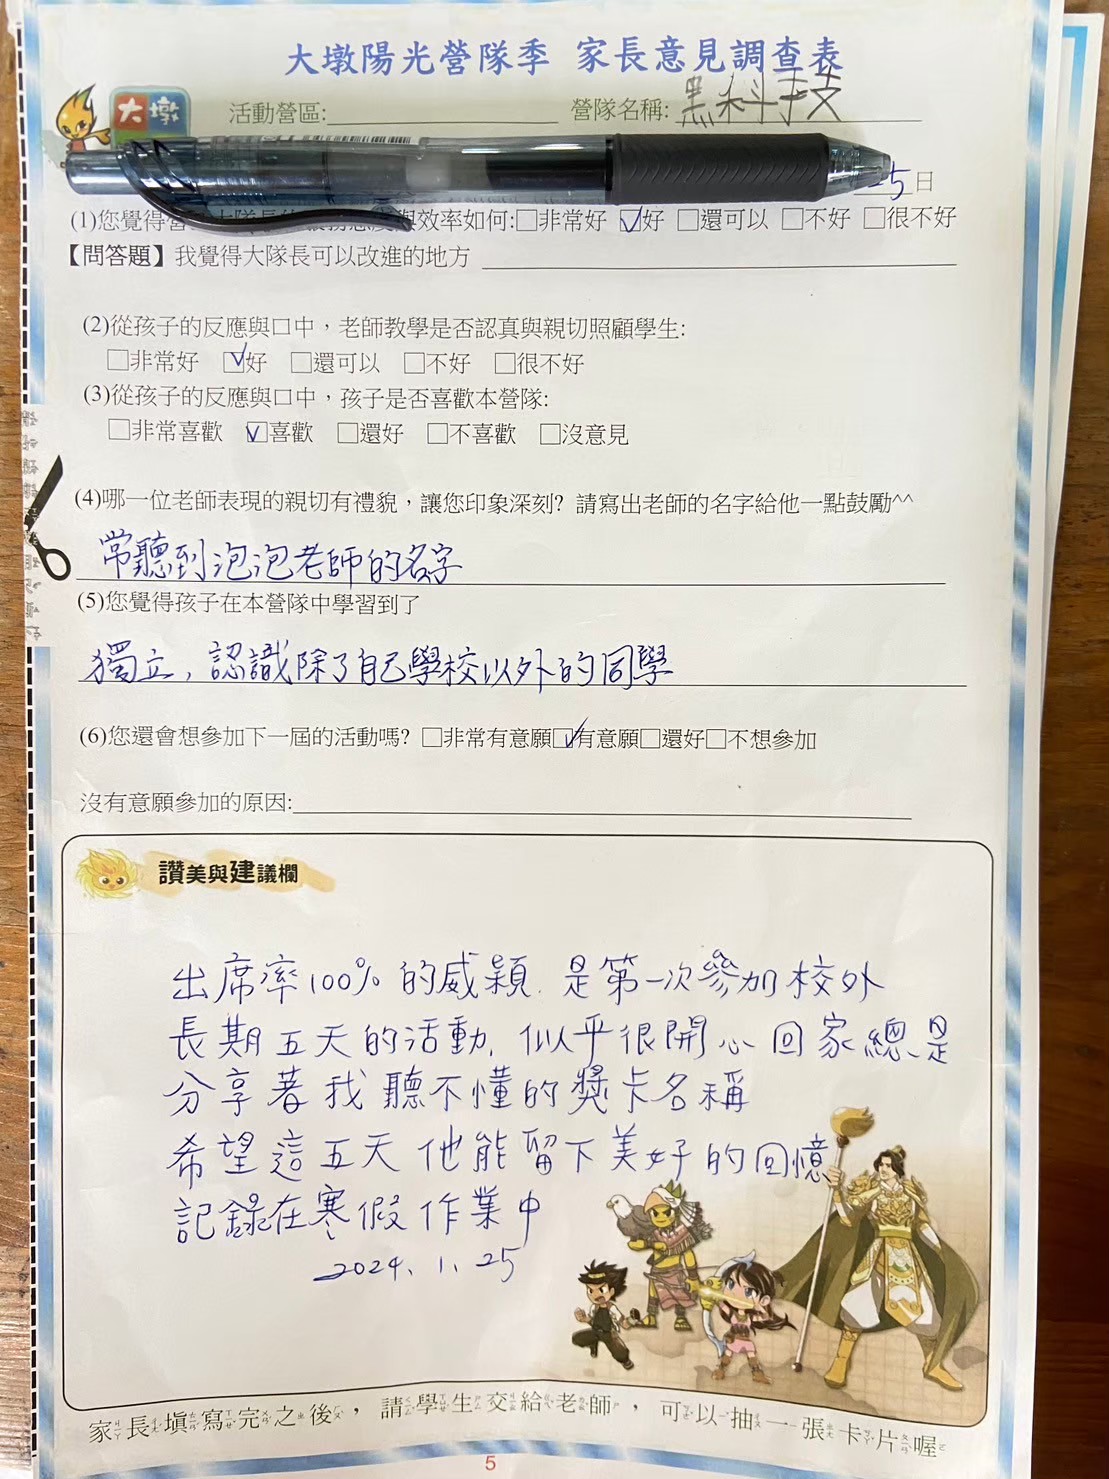 大墩陽光營隊季 家長意見調查表
大墩
活動營區: 營隊名稱: 黑科技
5日
(1)您覺得 與效率如何:□非常好 ☑好 □還可以 □不好 □很不好
【問答題】我覺得大隊長可以改進的地方
(2)從孩子的反應與口中，老師教學是否認真與親切照顧學生:
□非常好 ☑好 □還可以 □不好 □很不好
(3)從孩子的反應與口中，孩子是否喜歡本營隊:
□非常喜歡 ☑喜歡 □還好 □不喜歡 □沒意見
(4)哪一位老師表現的親切有禮貌，讓您印象深刻? 請寫出老師的名字給他一點鼓勵^^
常聽到泡泡老師的名字
(5)您覺得孩子在本營隊中學習到了
獨立，認識除了自己學校以外的同學
(6)您還會想參加下一屆的活動嗎? □非常有意願☑有意願□還好□不想參加
沒有意願參加的原因:
讚美與建議欄
出席率100%的威穎，是第一次參加校外
長期五天的活動，似乎很開心回家總是
分享著我聽不懂的獎卡名稱
希望這五天他能留下美好的回憶
記錄在寒假作業中
2024.1.25
家長填寫完之後，請學生交給老師，可以抽一張卡片喔
5